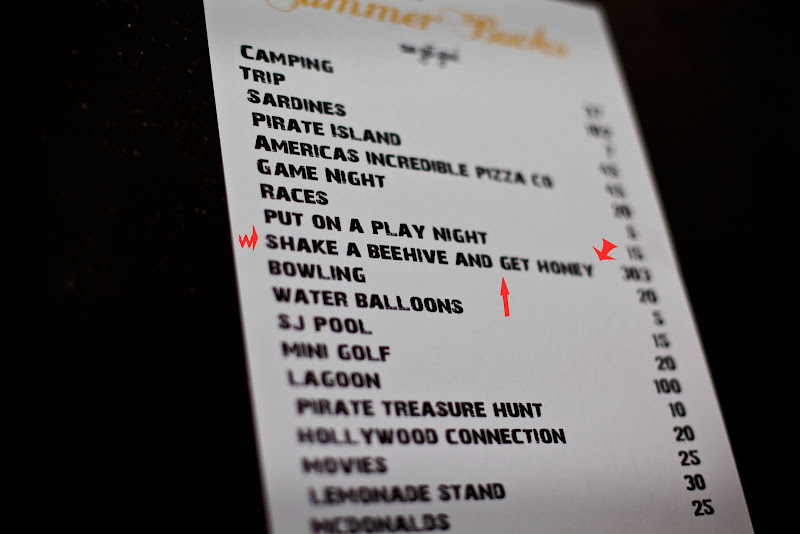 Summer Bucks
CAMPING
TRIP
SARDINES
PIRATE ISLAND 15
AMERICAS INCREDIBLE PIZZA CO 15
GAME NIGHT 20
RACES 5
PUT ON A PLAY NIGHT 15
SHAKE A BEEHIVE AND GET HONEY 303
BOWLING 20
WATER BALLOONS 5
SJ POOL 15
MINI GOLF 20
LAGOON 100
PIRATE TREASURE HUNT 10
HOLLYWOOD CONNECTION 20
MOVIES 25
LEMONADE STAND 30
MCDONALDS 25